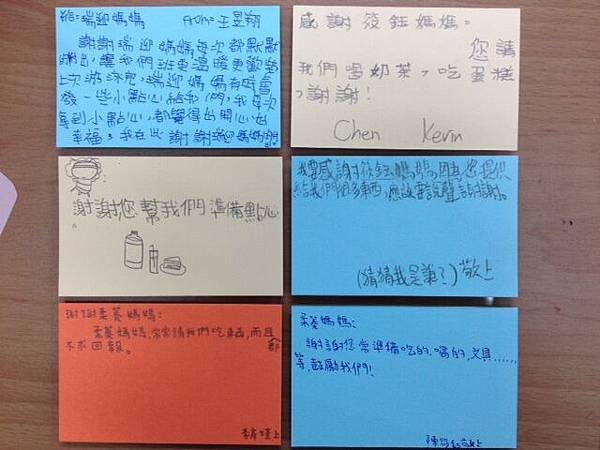 給:瑞迎媽媽 From:王昱翔
謝謝瑞迎媽媽每次都默默
付出,讓我們班更溫暖更歡樂
上次游泳完,瑞迎媽媽有時會
發一些小點心給我們,我每次
拿到小點心,都覺得出開心也
幸福,我在此謝謝瑞迎媽媽謝謝
感謝筱鈺媽媽。
您請
我們喝奶茶,吃蛋糕
,謝謝!
Chen Kevin
謝謝您幫我們準備點心
。
我要感謝筱鈺媽媽,因為您提供
給我們很多東西,應該要說聲謝謝。
(猜猜我是誰?)敬上
謝謝柔蓁媽媽:
柔蓁媽媽,常常請我們吃東西,而且都
不求回報。
上
柔蓁媽媽:
謝謝您常準備吃的、喝的、文具……
等,鼓勵我們!
敬上